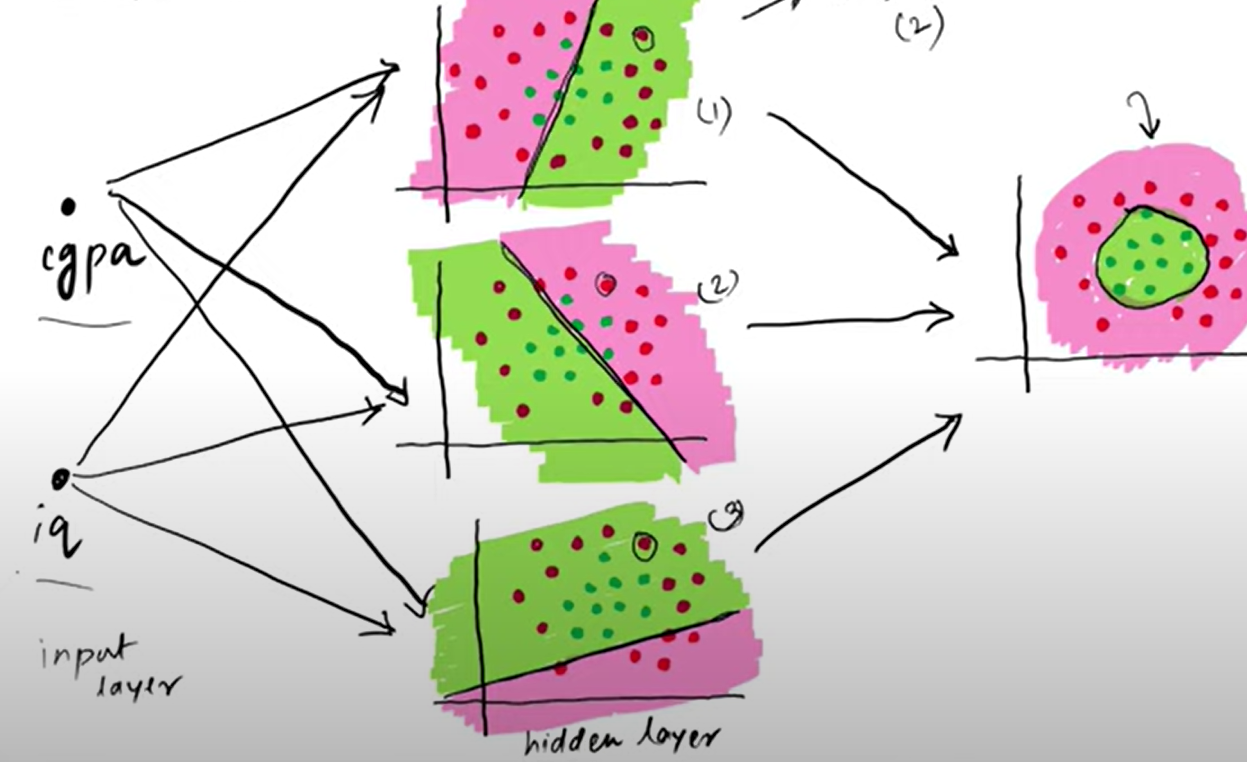 (2)
(1)
cgpa
(2)
iq
(3)
input
layer
hidden layer